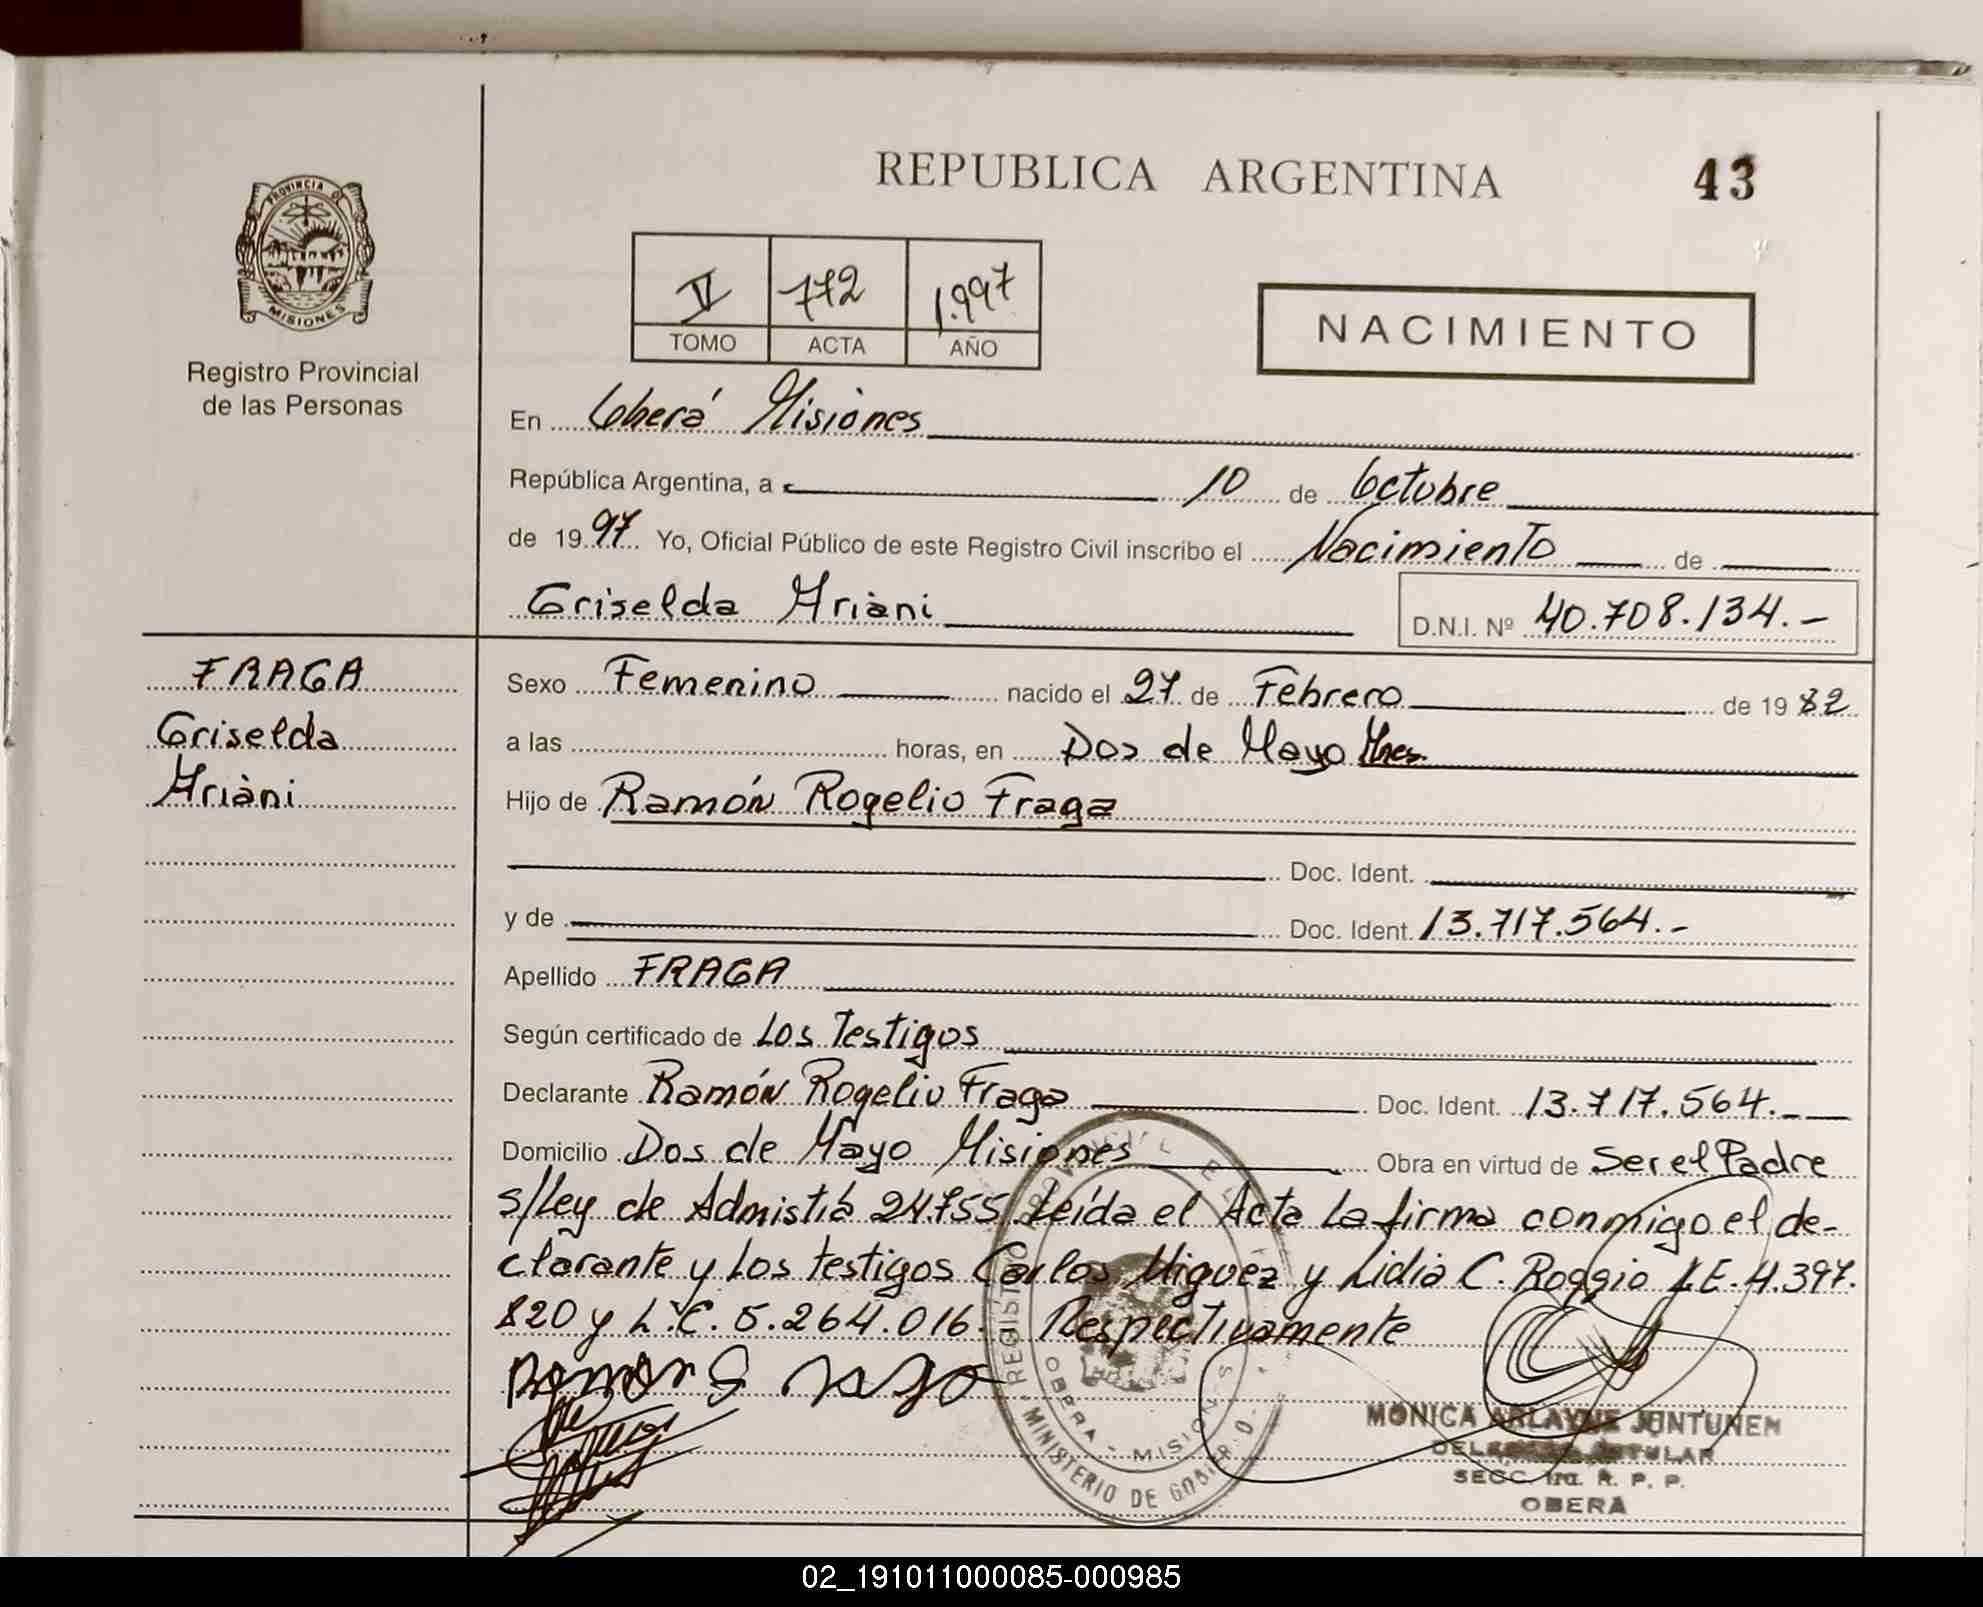 REPUBLICA ARGENTINA
43
PROVINCIA DE
MISIONES
Registro Provincial
de las Personas
V 772 1.997
TOMO ACTA AÑO
NACIMIENTO
En Oberá Misiones
República Argentina, a 10 de Octubre
de 1997 Yo, Oficial Público de este Registro Civil inscribo el Nacimiento de
Griselda Ariani D.N.I. Nº 40.708.134.-
FRAGA
Griselda
Ariani
Sexo Femenino nacido el 27 de Febrero de 1982
a las horas, en Dos de Mayo Mnes.
Hijo de Ramón Rogelio Fraga
Doc. Ident.
y de Doc. Ident. 13.717.564.-
Apellido FRAGA
Según certificado de Los Testigos
Declarante Ramón Rogelio Fraga Doc. Ident. 13.717.564.-
Domicilio Dos de Mayo Misiones Obra en virtud de Ser el Padre
s/Ley de Admistiá 24.755. Leída el Acta La firma conmigo el de-
clarante y Los testigos Carlos Miguez y Lidia C. Roggio L.E. 4.397.
820 y L.C. 5.264.016. Respectivamente
REGISTRO PROVINCIAL DE L
OBERA - MISIONES
MINISTERIO DE GOBIERNO
MONICA ARLAYNE JUNTUNEM
DELEGADA TITULAR
SECC. 1ra. R. P. P.
OBERA
02_191011000085-000985